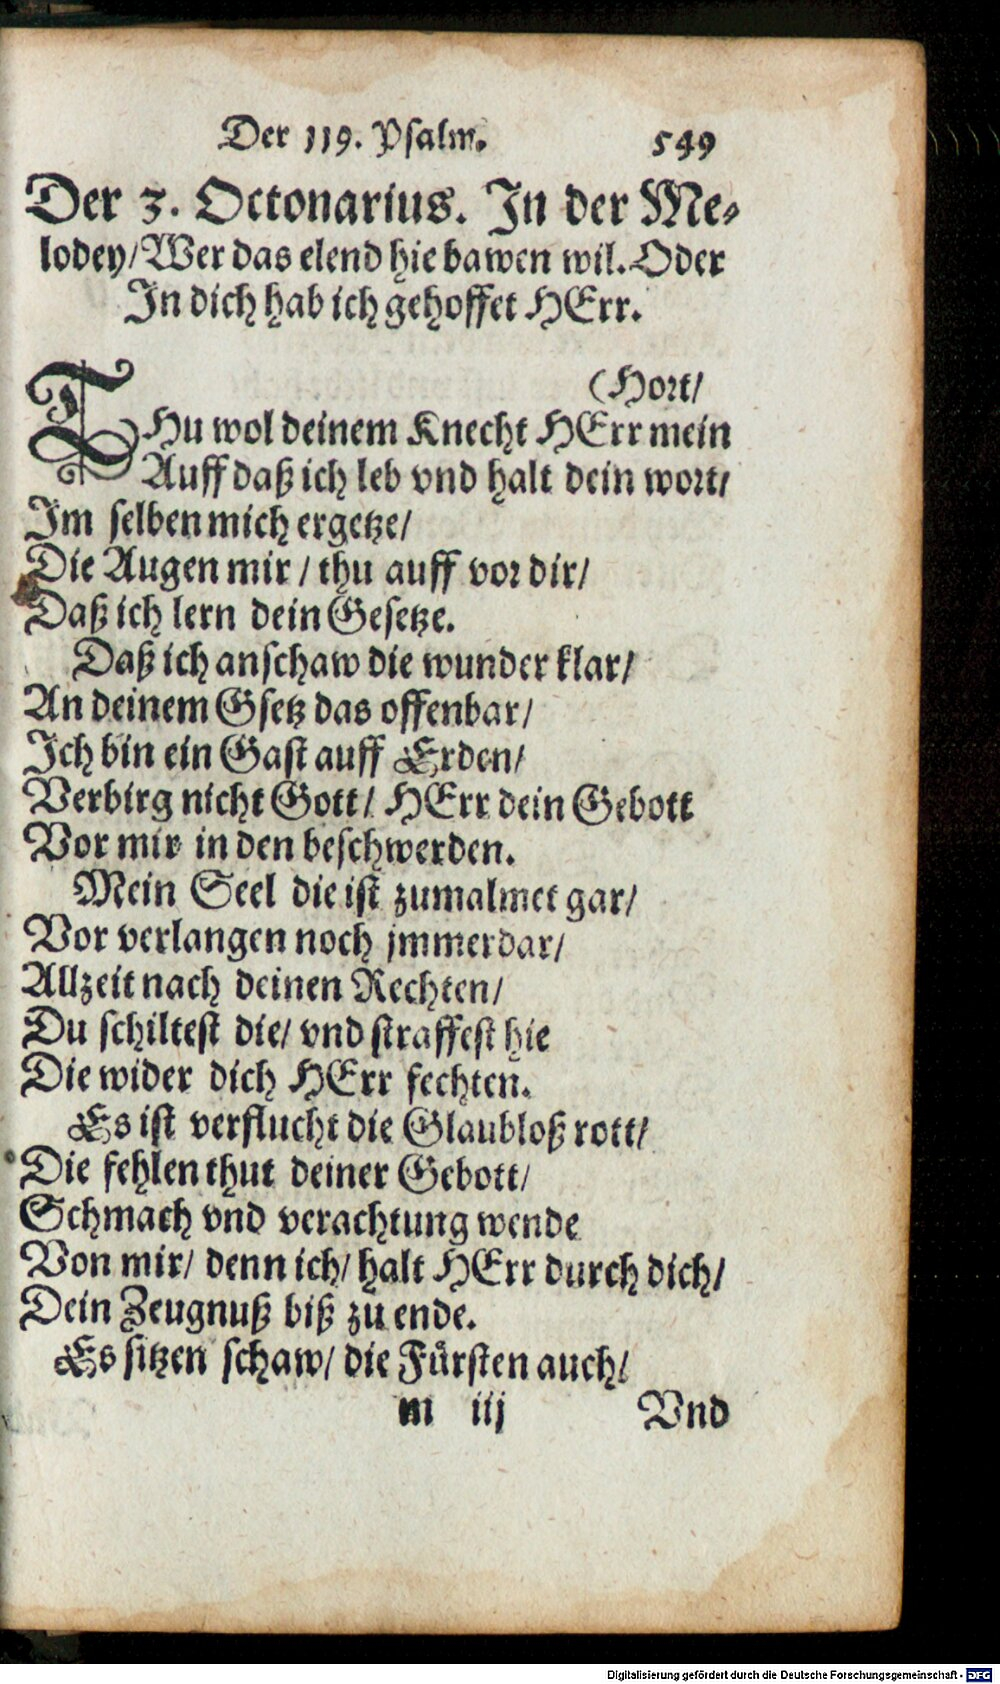 Der 119. Psalm. 549
Der 3. Octonarius. In der Me-
lodey/Wer das elend hie bawen wil. Oder
In dich hab ich gehoffet HErr.
(Hort/
THu wol deinem Knecht HErr mein
Auff daß ich leb vnd halt dein wort/
Im selben mich ergetze/
Die Augen mir / thu auff vor dir/
Daß ich lern dein Gesetze.
Daß ich anschaw die wunder klar/
An deinem Gsetz das offenbar/
Ich bin ein Gast auff Erden/
Verbirg nicht Gott/ HErr dein Gebott
Vor mir in den beschwerden.
Mein Seel die ist zumalmet gar/
Vor verlangen noch jmmerdar/
Allzeit nach deinen Rechten/
Du schiltest die/ vnd straffest hie
Die wider dich HErr fechten.
Es ist verflucht die Glaubloß rott/
Die fehlen thut deiner Gebott/
Schmach vnd verachtung wende
Von mir/ denn ich/ halt HErr durch dich/
Dein Zeugnuß biß zu ende.
Es sitzen schaw/ die Fürsten auch/
m iij Vnd
Digitalisierung gefördert durch die Deutsche Forschungsgemeinschaft - DFG